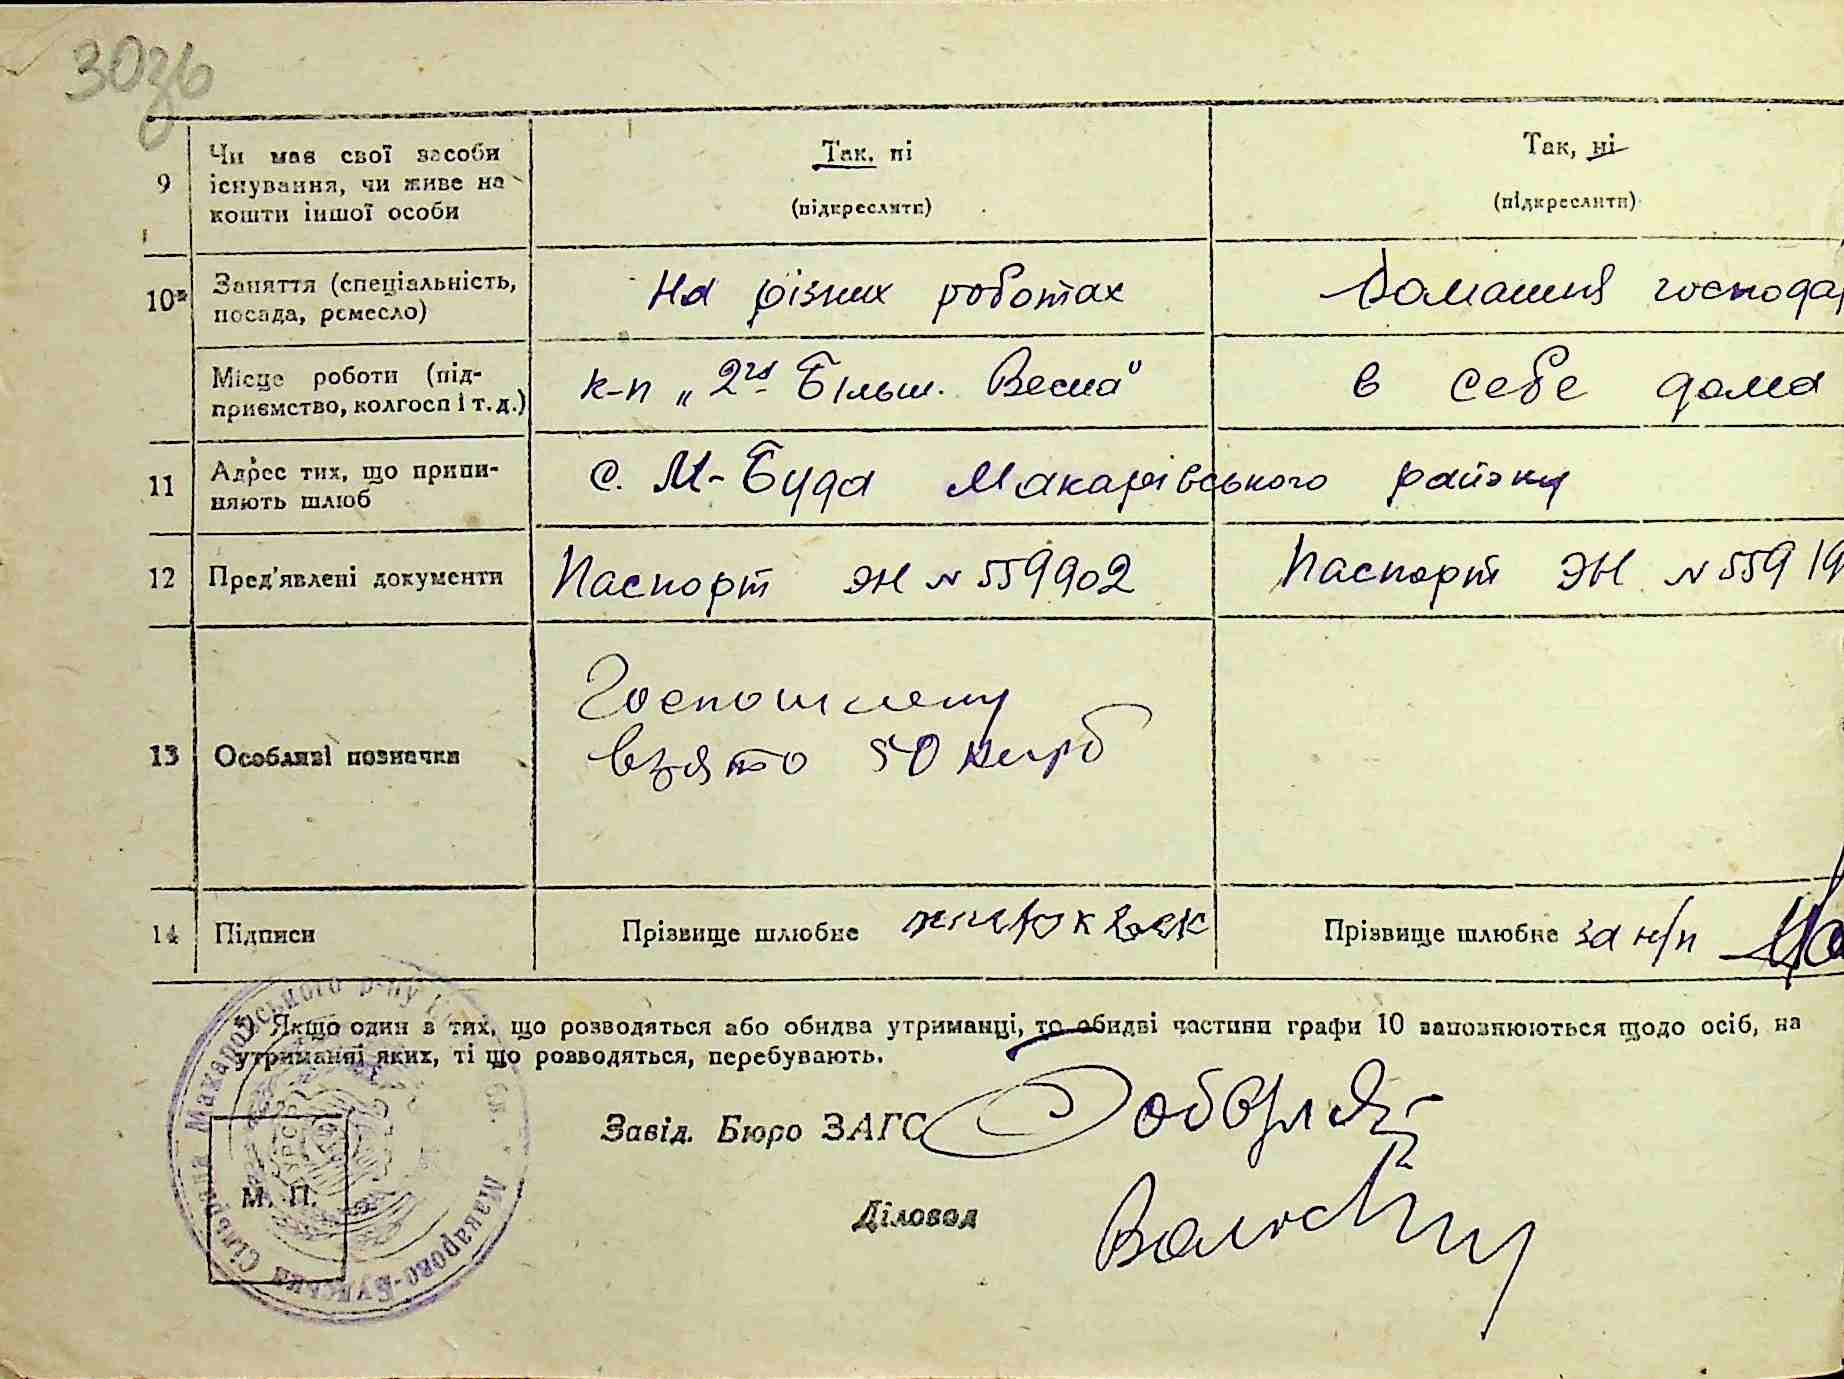 303б
9 Чи має свої засоби існування, чи живе на кошти іншої особи
Так, ні
(підкреслити)
Так, ні
(підкреслити)
10* Заняття (спеціальність, посада, ремесло)
На різних роботах
Домашня господар
Місце роботи (підприємство, колгосп і т. д.)
к-п „2га Більш. Весна"
в себе дома
11 Адрес тих, що припиняють шлюб
с. М-Буда Макарівського району
12 Пред'явлені документи
Паспорт ЭН № 559902
Паспорт ЭН № 55919
13 Особливі позначки
Госпошлену
взято 50 крб
14 Підписи
Прізвище шлюбне
Прізвище шлюбне за н/п
*) Якщо один з тих, що розводяться або обидва утриманці, то обидві частини графи 10 заповнюються щодо осіб, на
утриманні яких, ті що розводяться, перебувають.
Завід. Бюро ЗАГС
Діловод
М. П.
Макарово-Будська Сільрада Макарівського р-ну
УРСР